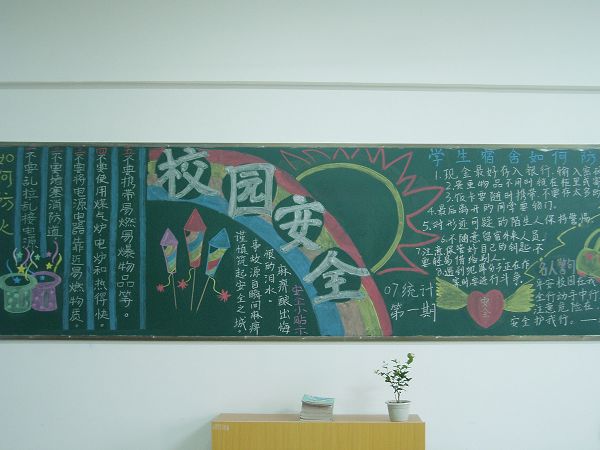 如何防火
一.不要乱拉乱接电源
二.不要堵塞消防道
三.不要将电源电路靠近易燃物质。
四.不要使用煤气炉电炉和热得快。
五.不要携带易燃易爆物品等。
校园安全
安全小贴士
麻痹酿出悔
恨的泪水。
事故源自瞬间麻痹
谨慎筑起安全之城
07统计
第一期
学生宿舍如何防
1.现金最好存入银行.输入密
2.贵重物品不用时锁在柜里
3.饭卡要随时携带.不要在人多的
4.最后离开的同学要锁门.
5.对形迹可疑的陌生人保持警惕.
6.不随意留宿外来人员.
7.注意保管好自己的钥匙不
要轻易借给别人.
安全
平安校园在我
全行动于中行
注意危险在
安全护我行。